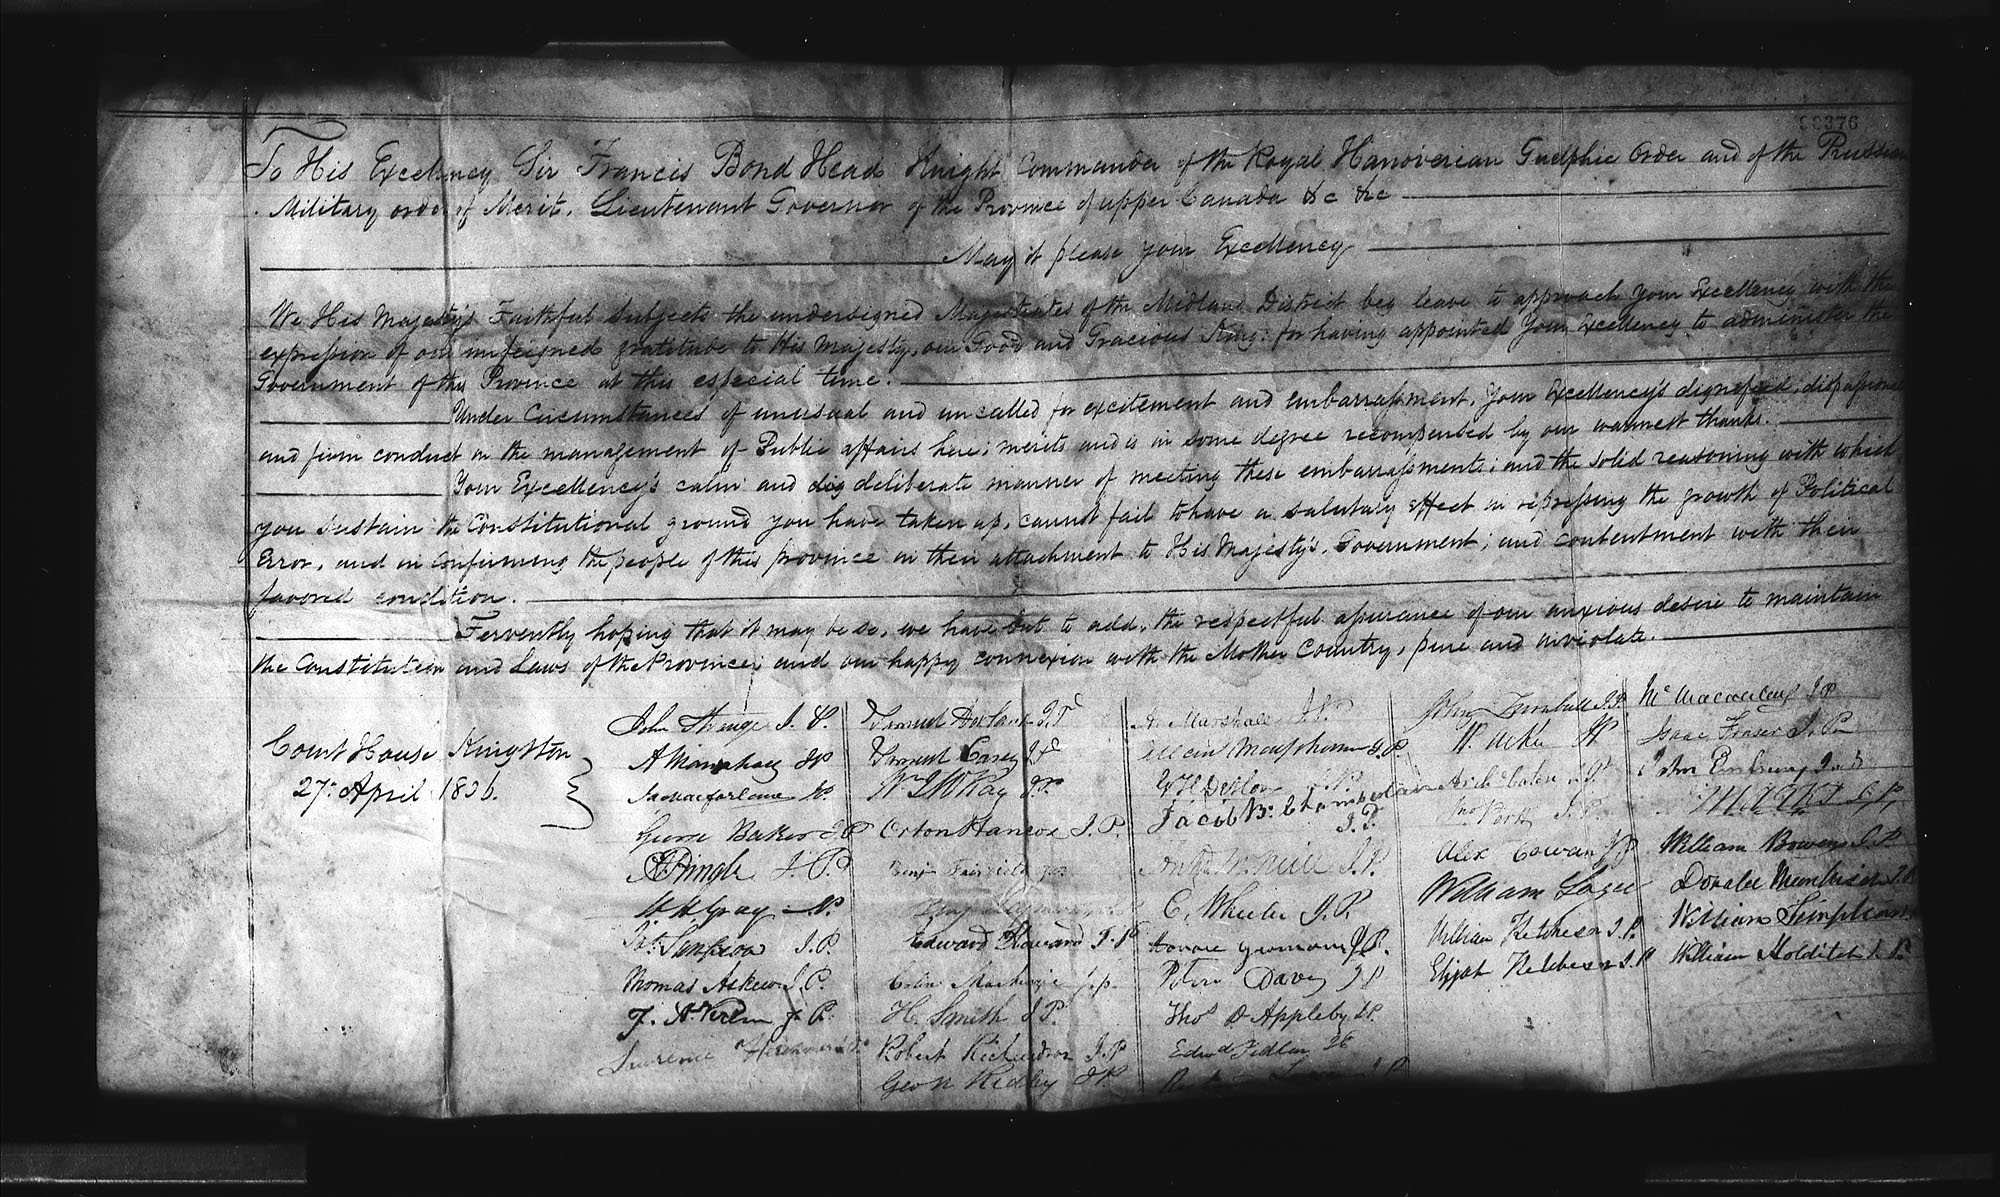 90376
To His Excellency Sir Francis Bond Head Knight Commander of the Royal Hanoverian Guelphic Order and of the Prussian
Military order of Merit, Lieutenant Governor of the Province of upper Canada &c &c
May it please your Excellency
We His Majesty's Faithful Subjects the undersigned Magistrates of the Midland District beg leave to approach Your Excellency with the
expression of our unfeigned gratitude to His Majesty, our Good and Gracious King: for having appointed Your Excellency to administer the
Government of this Province at this especial time.
Under Circumstances of unusual and uncalled for excitement and embarrassment, Your Excellency's dignified, dispassionate
and firm conduct in the management of Public affairs here; merits and is in some degree recompensed by our warmest thanks.
Your Excellency's calm and dig deliberate manner of meeting these embarrassments; and the solid reasoning with which
you sustain the Constitutional ground you have taken up, cannot fail to have a salutary effect in repressing the growth of Political
Error, and in Confirming the people of this province in their attachment to His Majesty's Government; and contentment with their
favored condition.
Fervently hoping that it may be so, we have but to add, the respectful assurance of our anxious desire to maintain
the Constitution and Laws of the Province; and our happy connexion with the Mother Country, pure and inviolate.
Court House Kingston
27th April 1836.
John Strange J.P.
A Manahan JP
Macfarlane JP.
George Baker JP
A Pringle J.P.
Gray JP.
J.P.
Thomas Askew J.P.
J. P.
Herchmer
Samuel Dorland J.P.
Samuel Casey JP
Wm J McKay J.P.
Orton Hancox J.P.
Benj Fairfield JP
Edward Howard J.P
Colin Mackenzie j.p.
H. Smith J P.
Robert Richardson J.P
Geo N Ridley JP
Marshall J.P.
Macpherson J.P.
J.P.
Jacob B. Chamberlain
J.P.
J.P.
C. Wheeler J.P.
JP.
Peter Davy JP
Thos D Appleby J.P.
Edwd Fidlar JP
J P
John Turnbull J.P.
W. Parker JP
Archd Caton J.P.
J.P.
Alex Cowan JP
William
William Ketcheson J.P.
Elijah Ketcheson J.P.
Macaulay J.P
Isaac Fraser J.P.
John Embury J.P.
Marks J.P.
William Bowen J.P
Donald Murchison J.P.
William Simpson
William Holditch J.P.